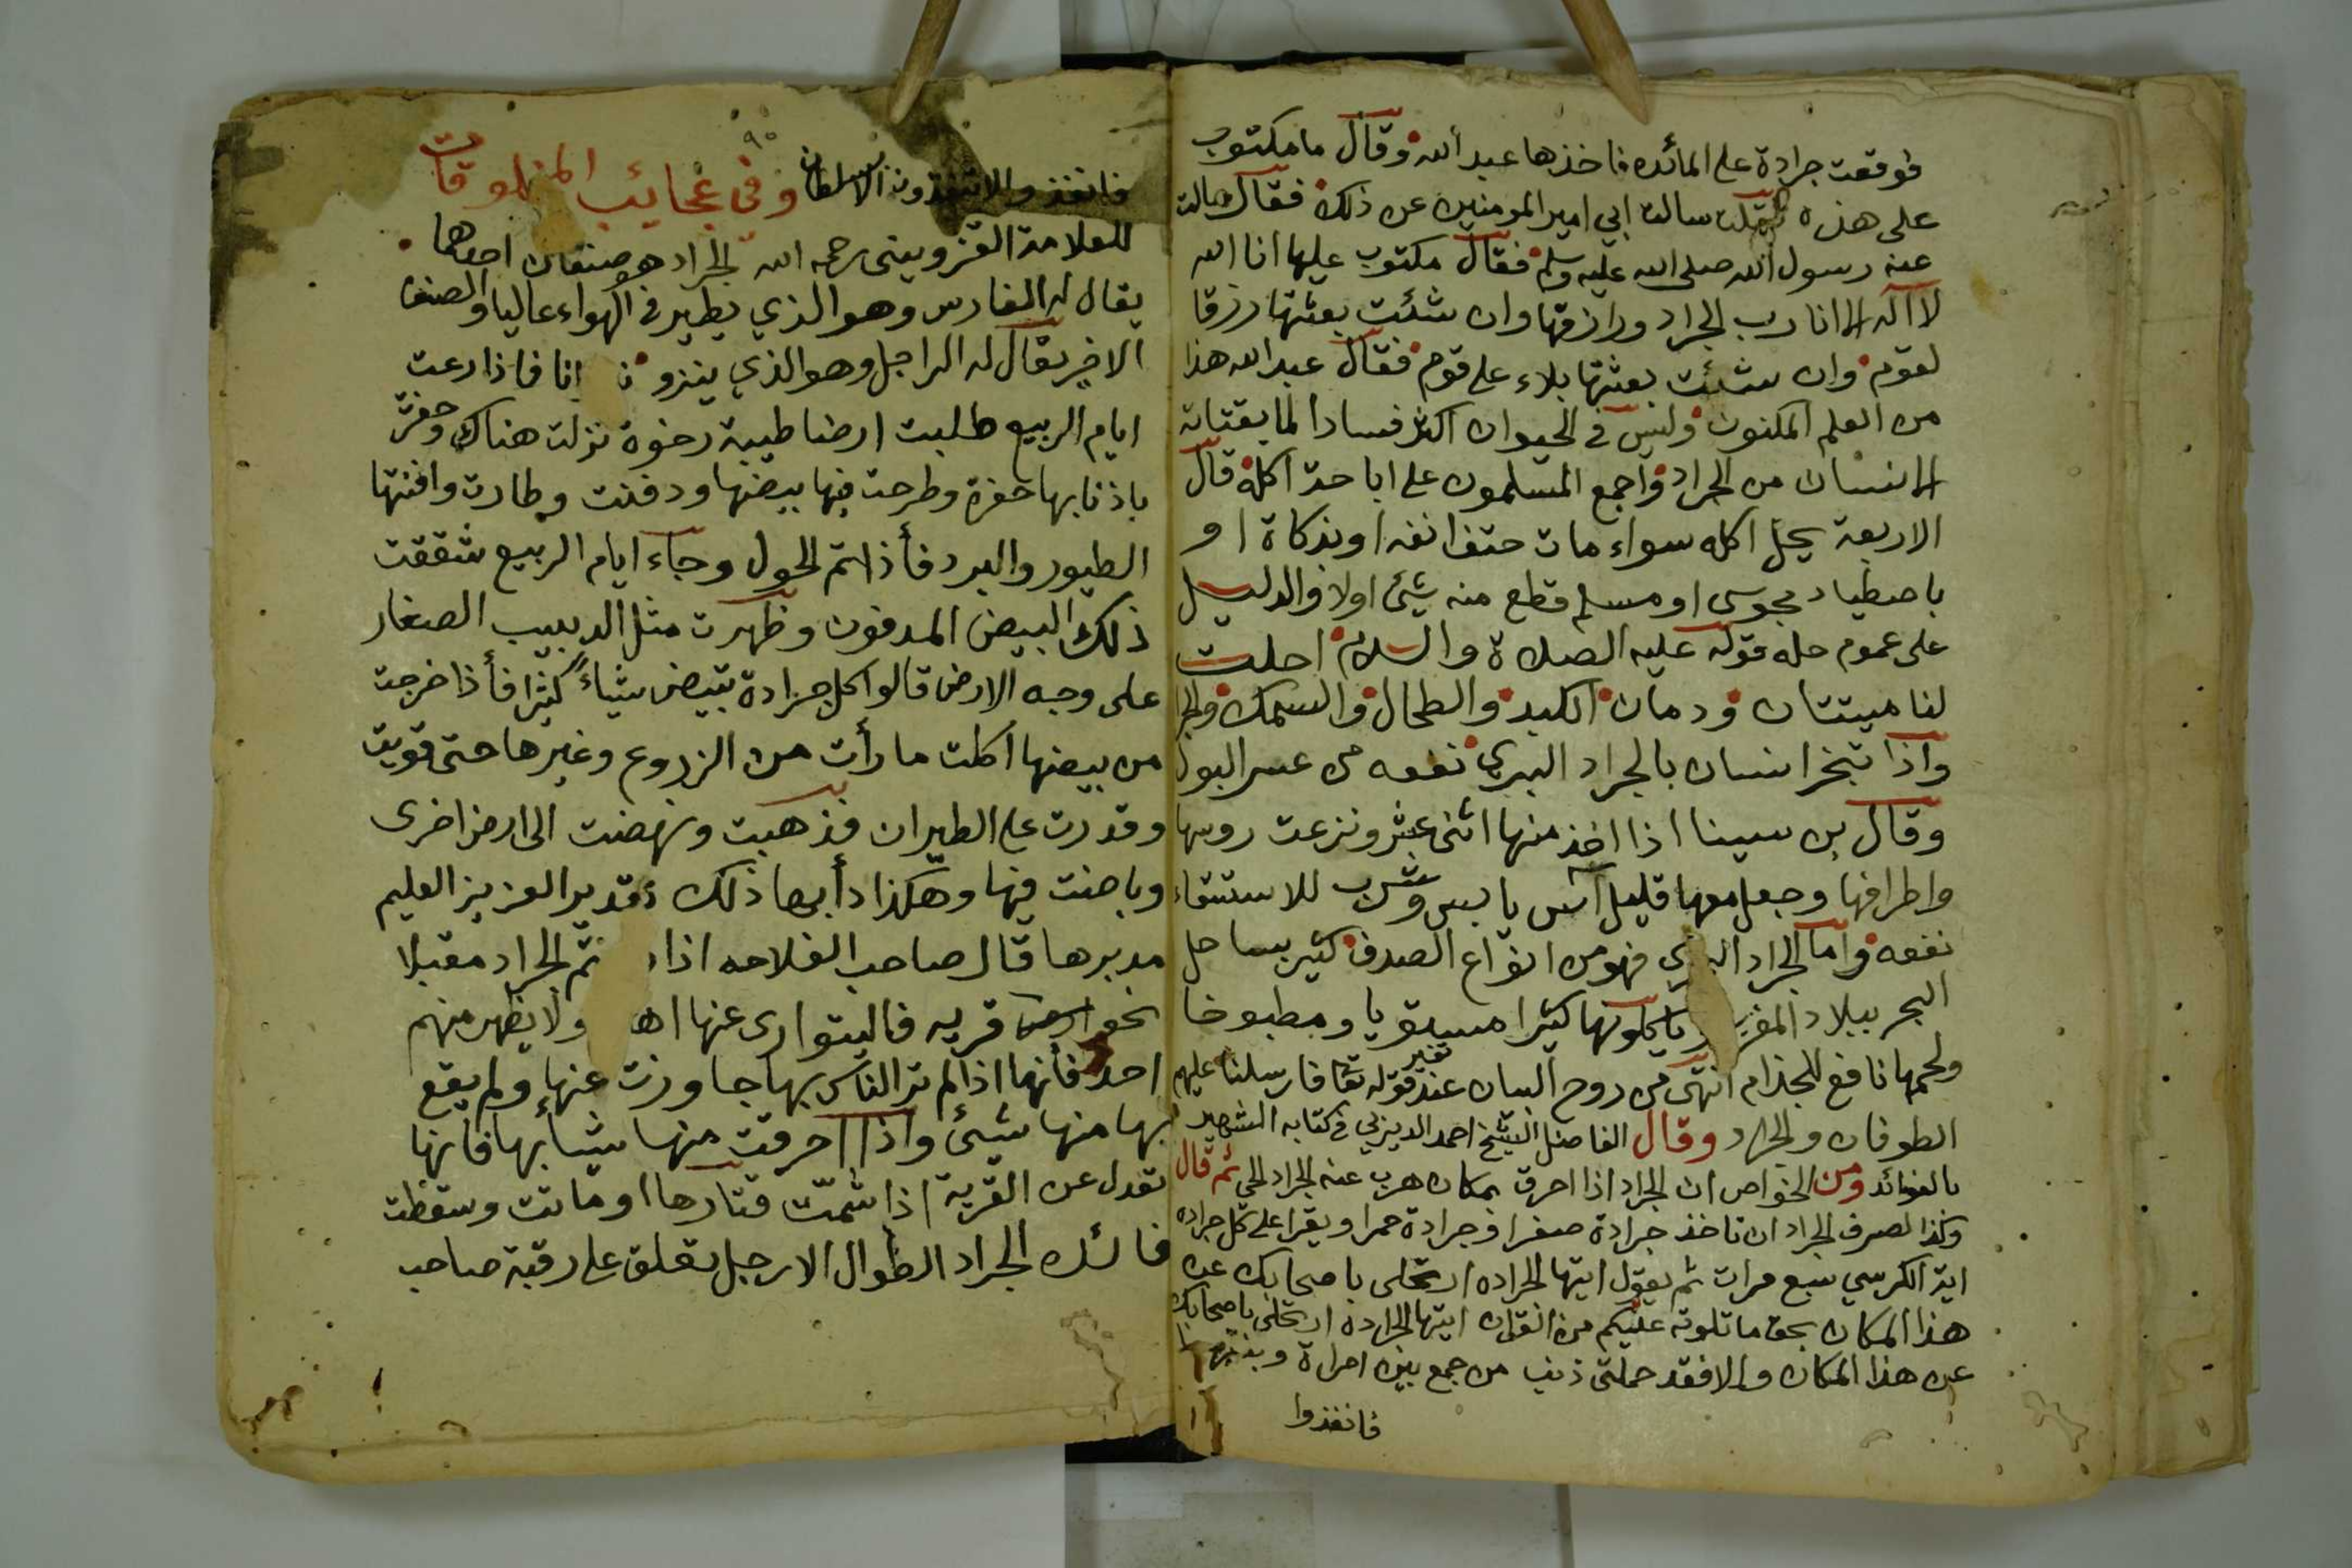 فوقعت جرادة على المائده فاخذها عبد الله وقال ما مكتوب
على هذه فقلت سالت ابي امير المومنين عن ذلك فقال سالت
عنه رسول الله صلى الله عليه وسلم فقال مكتوب عليها انا الله
لا اله الا انا رب الجراد ورازقها وان شئت بعثتها رزقا
لقوم وان شئت بعثتها بلاء على قوم فقال عبد الله هذا
من العلم المكنون وليس في الحيوان اكثر فسادا لما يقتاته
الانسان من الجراد واجمع المسلمون على اباحة اكله قال
الاربعة يحل اكله سواء مات حتف انفه او بذكاة او
باصطياد مجوسى او مسلم قطع منه شيئ اولا والدليل
على عموم حله قوله عليه الصلاة والسلام احلت
لنا ميتتان ودمان الكبد والطحال والسمك والجرا
واذا تبخر انسان بالجراد البري نفعه من عسر البول
وقال بن سينا اذا اخذ منها اثنى عشر ونزعت روسها
واطرافها وجعل معها قليل آس يابس وشرب للاستسقاء
نفعه واما الجراد البحري فهو من انواع الصدف كثير بساحل
البحر ببلاد المغرب وياكلونها كثيرا مسيقويا ومطبوخا
ولحمها نافع للجذام انتهى من روح البيان عند تفسير قوله تعا فارسلنا عليهم
الطوفان والجراد وقال الفاضل الشيخ احمد الديربي في كتابه الشهير
بالفوائد ومن الخواص ان الجراد اذا احرق بمكان هرب عنه الجراد الحي ثم قال
وكذا لصرف الجراد ان تاخذ جرادة صفرا وجرادة حمرا ويقرا على كل جراده
اية الكرسي سبع مرات ثم يقول ايتها الجراده ارتحلى باصحابك عن
هذا المكان بحق ما تلوته عليكم من القران ايتها الجرادة ارتحلى باصحابك
عن هذا المكان والا فقد حملتى ذنب من جمع بين امراة وبنتها
فانفذوا
٩٠
فانفذوا لا تنفذون الا بسلطان وفي عجايب المخلوقات
للعلامة القزوينى رحمه الله الجراد هو صنفان احدهما
يقال له الفارس وهو الذي يطير في الهواء عاليا والصنف
الاخر يقال له الراجل وهو الذي ينزو انا فاذا رعت
ايام الربيع طلبت ارضا طيبة رخوة نزلت هناك وحفرت
باذنابها حفرة وطرحت فيها بيضها ودفنت وطارت وافنتها
الطيور والبرد فأذا تم الحول وجاء ايام الربيع شققت
ذلك البيض المدفون وظهرت مثل الدبيب الصغار
على وجه الارض قالوا كل جرادة تبيض شياءً كثيرا فأذا خرجت
من بيضها اكلت ما رأت من الزروع وغيرها حتى قويت
وقدرت على الطيران فذهبت ونهضت الى ارض اخرى
وباضت فيها وهكذا دأبها ذلك تقدير العزيز العليم
مدبرها قال صاحب الفلاحه اذا تم الجراد مقبلا
نحو قريه فاليتوارى عنها اهـ ولا يظهر منهم
احد فأنها اذا لم تر الناس بها جاوزت عنها ولم يقع
بها منها شيئ واذا احرقت منها شيأ بها فانها
تعدل عن القرية اذا شمّت قتارها او ماتت وسقطت
فائده الجراد الطوال الارجل يعلق على رقبة صاحب